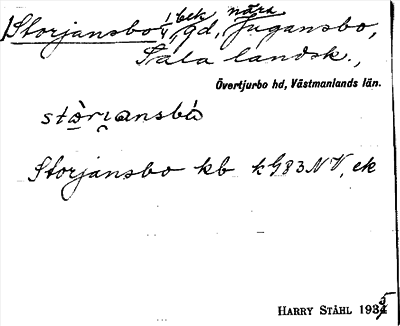 Storjansbo 1/4 bek nära
gd, Jugansbo,
Sala landsk.,
Övertjurbo hd, Västmanlands län.
stò̱ri̯ansbò
Storjansbo kb k G83NV, ek
HARRY STÅHL 1935